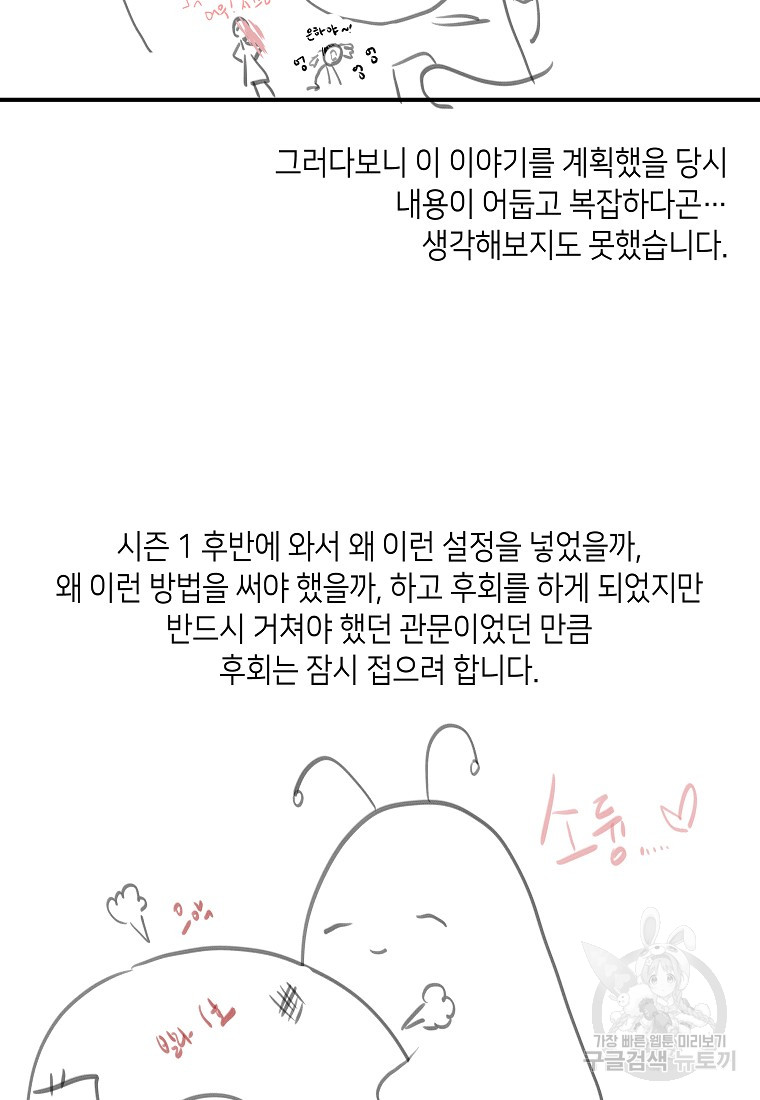 은하야~!
엉
엉
엉
엉
그러다보니 이 이야기를 계획했을 당시
내용이 어둡고 복잡하다곤…
생각해보지도 못했습니다.
시즌 1 후반에 와서 왜 이런 설정을 넣었을까,
왜 이런 방법을 써야 했을까, 하고 후회를 하게 되었지만
반드시 거쳐야 했던 관문이었던 만큼
후회는 잠시 접으려 합니다.
소듕.....
가장 빠른 웹툰 미리보기
구글검색 뉴토끼